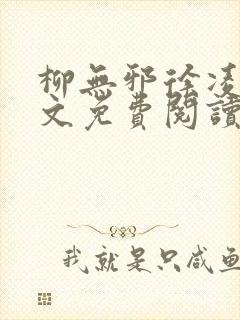 柳無邪徐凌
文免費閱讀
我就是只咸魚